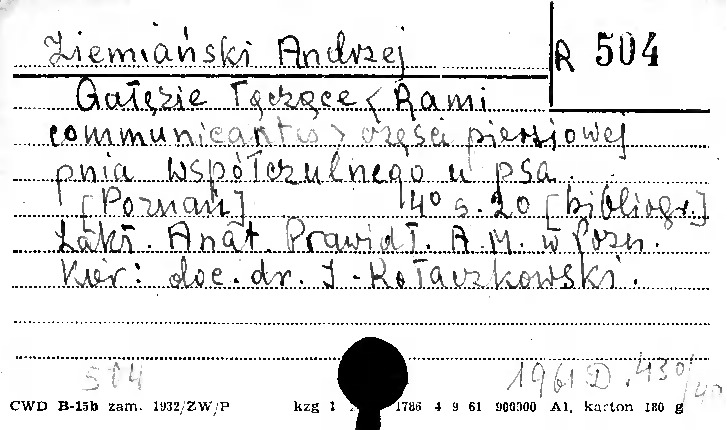 Ziemiański Andrzej
R 504
Gałęzie łączące < Rami
communicantes > części piersiowej
pnia współczulnego u psa.
[Poznań] 4° s. 20 [bibliogr.]
Zakł. Anat. Prawidł. A.M. w Pozn.
Kier: doc. dr. J. Kołaczkowski.
514 1961 D. 430/40
CWD B-15b zam. 1932/ZW/P kzg 1 1786 4 9 61 900000 A1, karton 180 g